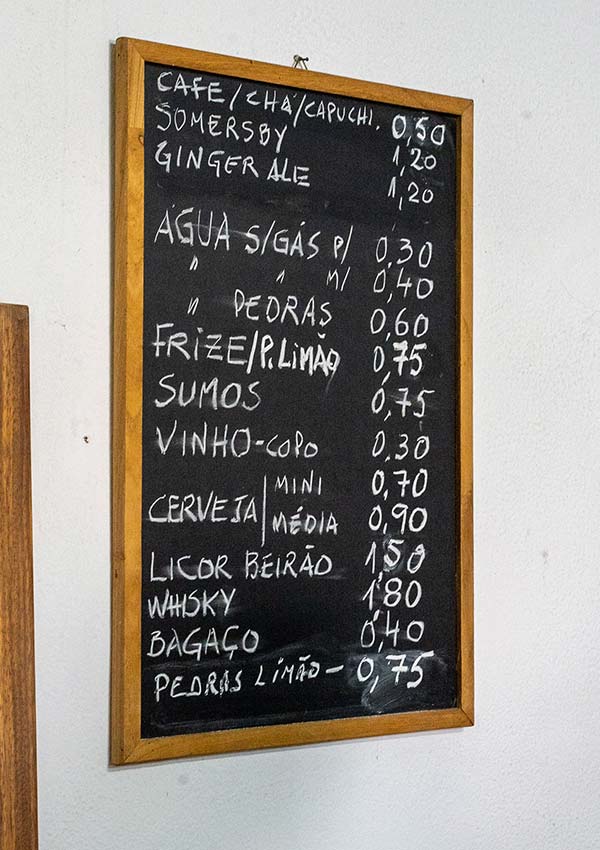 CAFE/CHÁ/CAPUCHI. 0,50
SOMERSBY 1,20
GINGER ALE 1,20
ÁGUA S/GÁS P/ 0,30
" " M/ 0,40
" PEDRAS 0,60
FRIZE/P.LIMÃO 0,75
SUMOS 0,75
VINHO-COPO 0,30
CERVEJA MINI 0,70
MÉDIA 0,90
LICOR BEIRÃO 1,50
WHISKY 1,80
BAGAÇO 0,40
PEDRAS LIMÃO - 0,75